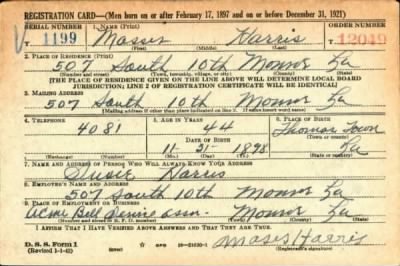 REGISTRATION CARD—(Men born on or after February 17, 1897 and on or before December 31, 1921)
SERIAL NUMBER 1. NAME (Print) ORDER NUMBER
T 1199 Harris T 12049
(First) (Middle) (Last)
2. PLACE OF RESIDENCE (Print)
507 South 10th Monroe La
(Number and street) (Town, township, village, or city) (County) (State)
[THE PLACE OF RESIDENCE GIVEN ON THE LINE ABOVE WILL DETERMINE LOCAL BOARD
JURISDICTION; LINE 2 OF REGISTRATION CERTIFICATE WILL BE IDENTICAL]
3. MAILING ADDRESS
507 South 10th Monroe La
[Mailing address if other than place indicated on line 2. If same insert word same]
4. TELEPHONE 5. AGE IN YEARS 6. PLACE OF BIRTH
4081 44 Thomas Town
DATE OF BIRTH (Town or county)
11 21 1898 La
(Exchange) (Number) (Mo.) (Day) (Yr.) (State or country)
7. NAME AND ADDRESS OF PERSON WHO WILL ALWAYS KNOW YOUR ADDRESS
Susie Harris
8. EMPLOYER'S NAME AND ADDRESS
507 South 10th Monroe La
9. PLACE OF EMPLOYMENT OR BUSINESS
Acme Bill Monroe La
(Number and street or R. F. D. number) (Town) (County) (State)
I AFFIRM THAT I HAVE VERIFIED ABOVE ANSWERS AND THAT THEY ARE TRUE.
D. S. S. Form 1
(Revised 1-1-42) GPO 16—21630-1 Moses Harris
(Registrant's signature)